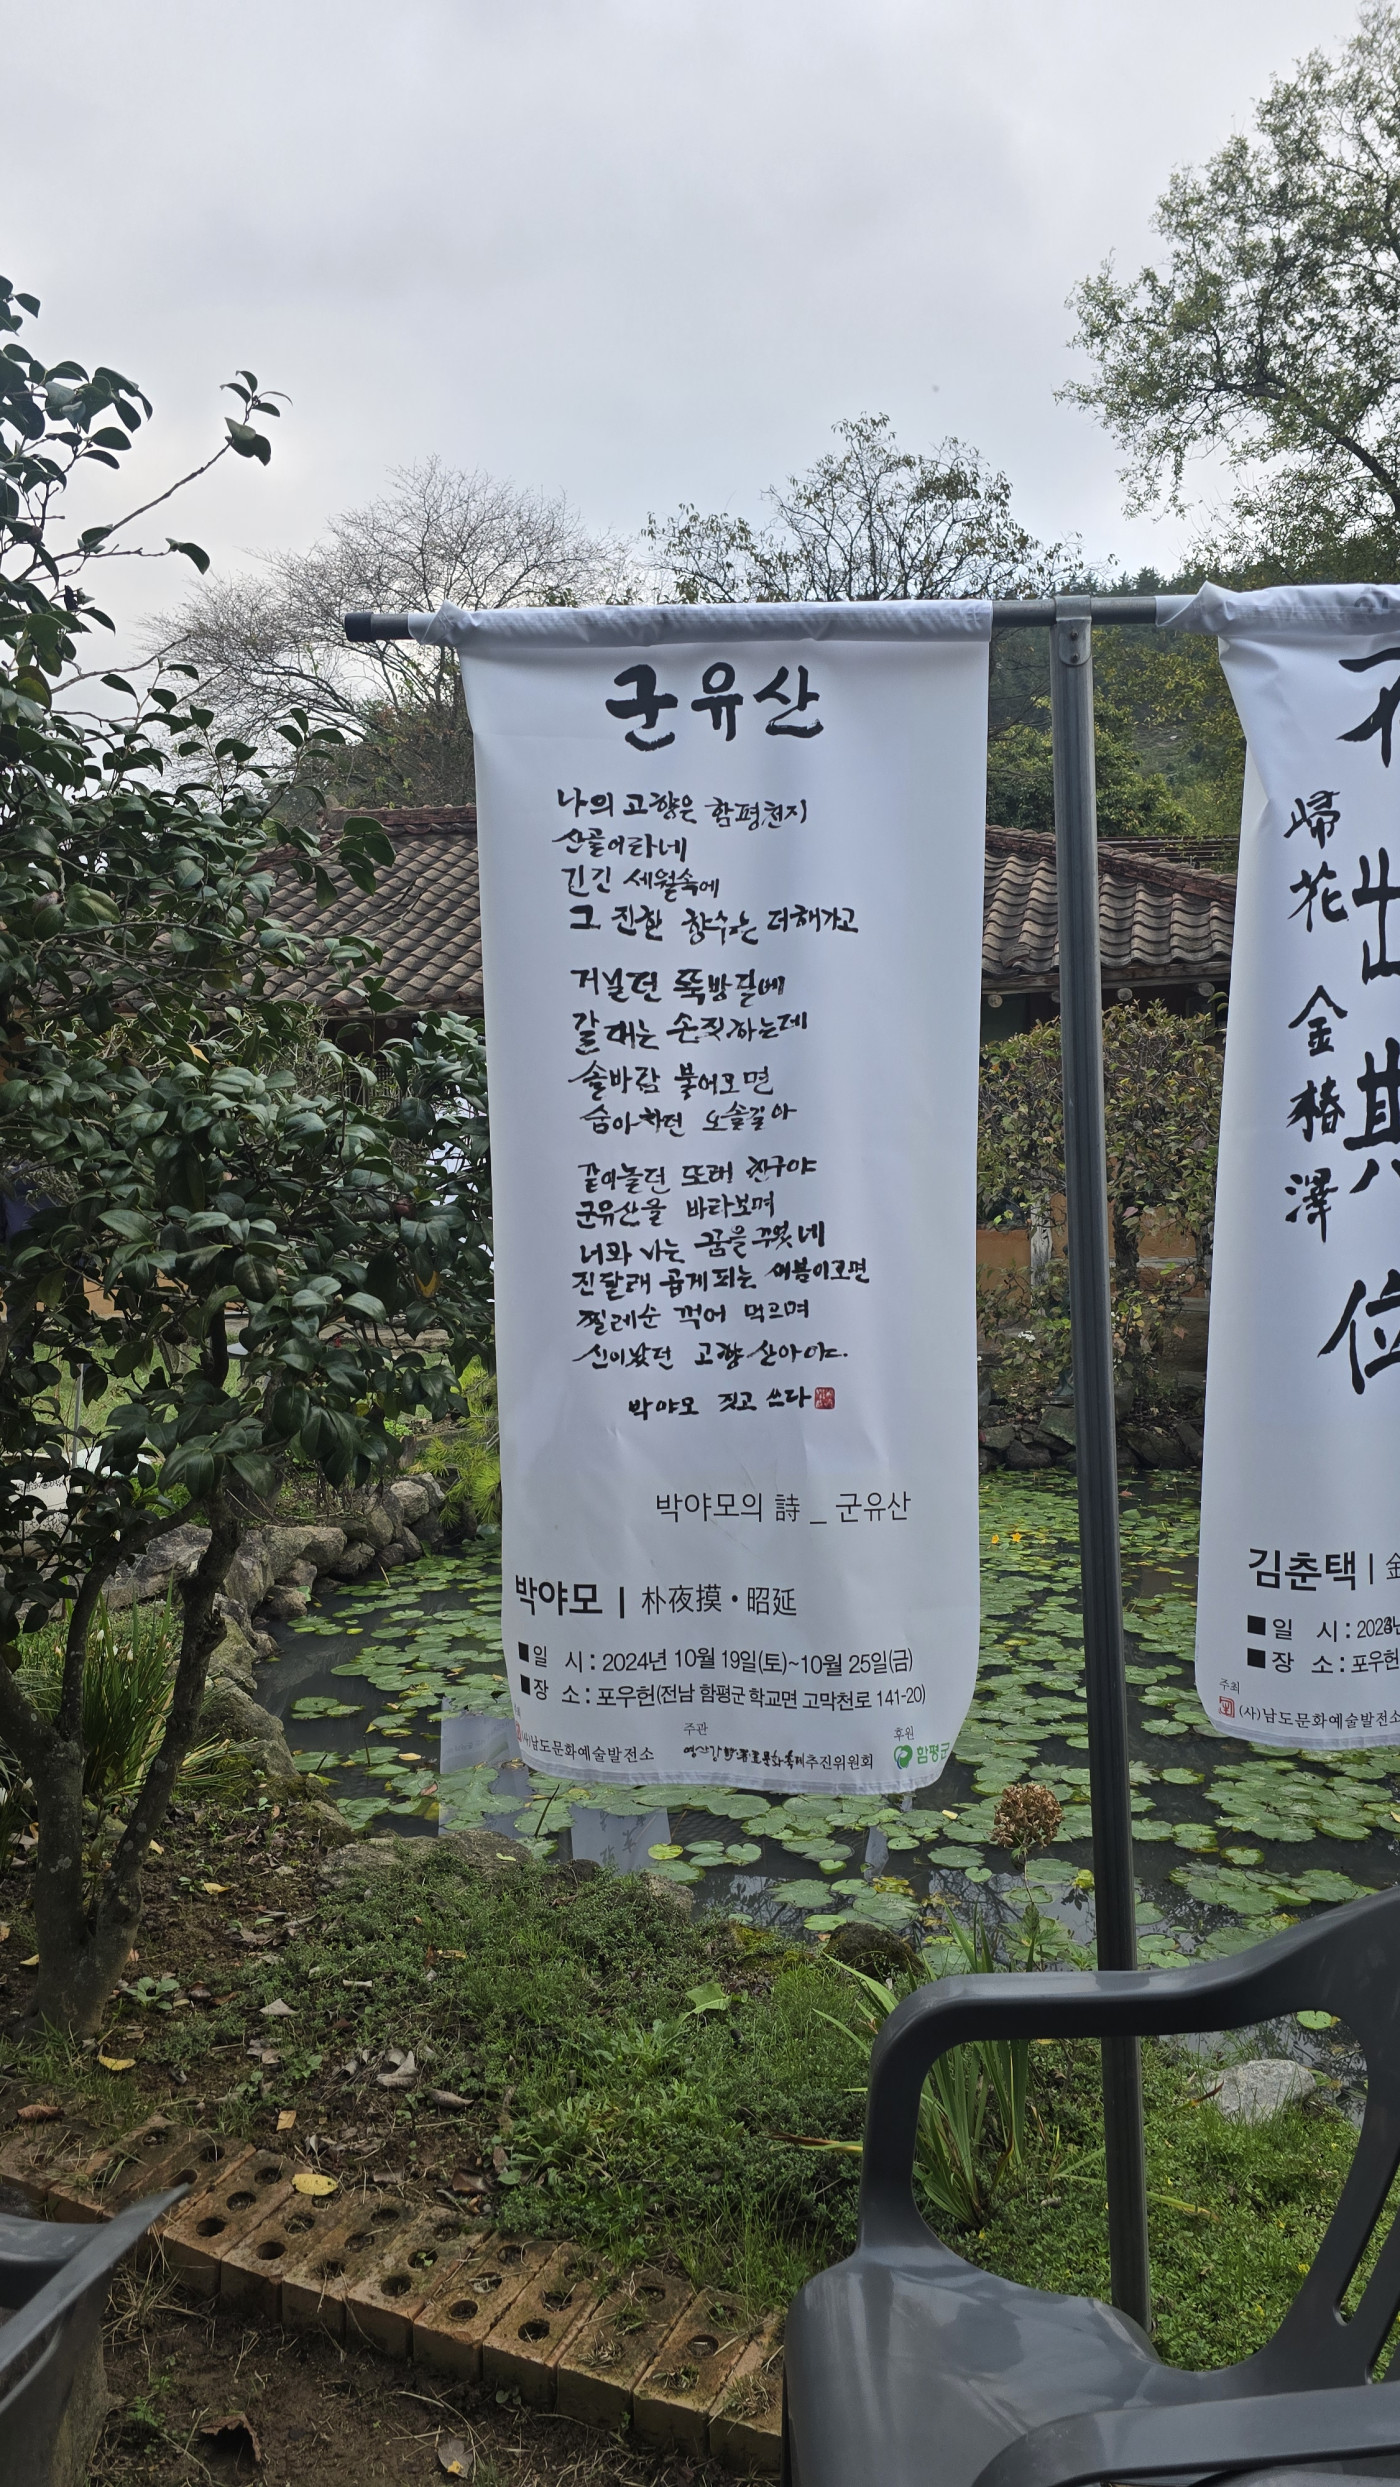 군유산
나의 고향은 함평천지
산골이라네
긴긴 세월속에
그 진한 향수는 더해가고
거닐던 뚝방길에
갈대는 손짓하는데
솔바람 불어오면
숨이차던 오솔길아
같이놀던 또래 친구야
군유산을 바라보며
너와 나는 꿈을 꾸웠네
진달래 곱게피는 새봄이오면
찔레순 꺽어 먹으며
신이났던 고향 산아야.
박야모 짓고 쓰다
박야모의 詩 _ 군유산
박야모 | 朴夜摸 • 昭延
■일 시 : 2024년 10월 19일(토)~10월 25일(금)
■장 소 : 포우헌(전남 함평군 학교면 고막천로 141-20)
(사)남도문화예술발전소
주관
추진위원회
후원
함평군
歸花 金椿澤
出其位
김춘택 |
■일 시 :
■장 소 : 포우헌
주최
(사)남도문화예술발전소